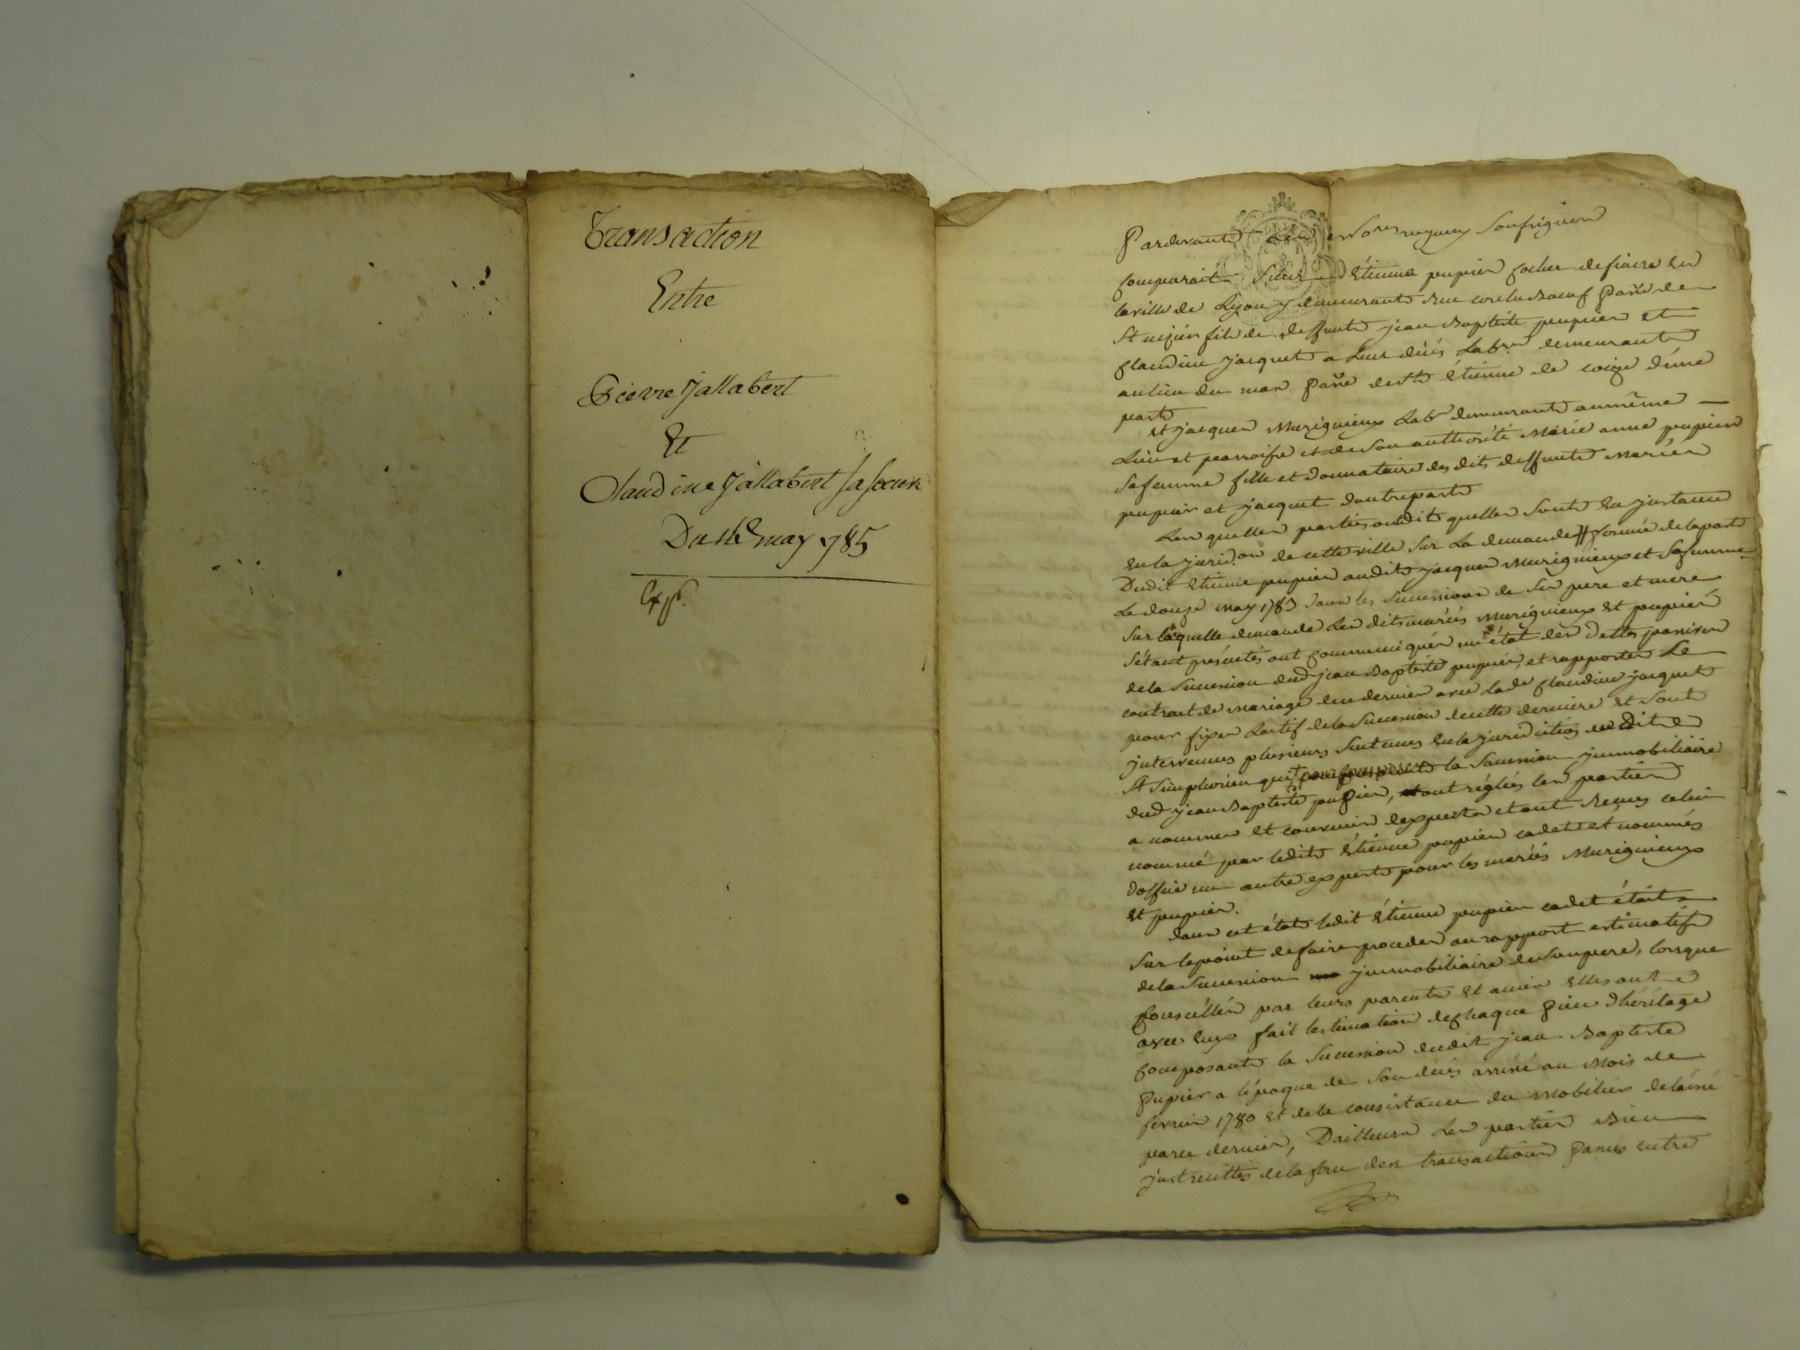 Transaction
Entre
Pierre Jallabert
Et
Claudine Jallabert sa soeur
Du 16 may 1785
Exp.
Pardevant Les Nores royaux soussignés
comparait Sieur Etienne pupier cocher de fiacre en
la ville de Lyon y demeurant rue Paroe de
St nizier fils de deffunts jean Baptiste pupier et
Claudine jacquet a leur décés Labrs demeurants
au lieu du mas Paroe de St Etienne de coize d'une
part
et jacques Murignieux Labr demeurant au même
Lieu et parroisse et de Son authorité Marie anne pupier
Sa femme fille et donnataire des dits deffunts Mariés
pupier et jacquet d'autre part
Lesquelles parties ont dit qu'elles Sont En jnstance
En la juridon de cette ville Sur La demande formée de la part
Dudit Etienne pupier audit jacques Murignieux et Sa femme
Le douze may 1783 dans les Successions de Ses pere et mere
Sur laquelle demande Les dits mariés Murignieux et pupier
S'étant présentés ont communiqué un état des Dettes passives
de la Succession dud jean Baptiste pupier, et rapporté Le
contrat de mariage de ce dernier avec Lade Claudine jacquet
pour fixer L'actif de la Succession de cette derniere Et Sont
jntervenus plusieurs Sentences En la juridiction dudit
St Simphorien qui la Succession jmmobiliaire
dud jean Baptiste pupier, ont réglés les parties
a nommer Et convenir d'experts et ont Reçus celui
nommé par ledit Etienne pupier cadet et nommés
d'office un autre expert pour les mariés Murignieux
Et pupier.
dans cet état ledit Etienne pupier cadet était
Sur le point de faire proceder au rapport estimatif
de la Succession jmmobiliaire de Son pere, lorsque
Conseillés par leurs parents Et amis Elles ont
avec Eux fait l'estimation de chaque Piece d'héritage
Composant la Succession dudit jean Baptiste
Pupier a l'époque de Son décés arrivé au Mois de
février 1780 Et de la consistance du Mobilier delaissé
par ce dernier, D'ailleurs Les parties Bien
jnstruittes de la force des transactions Passés entre